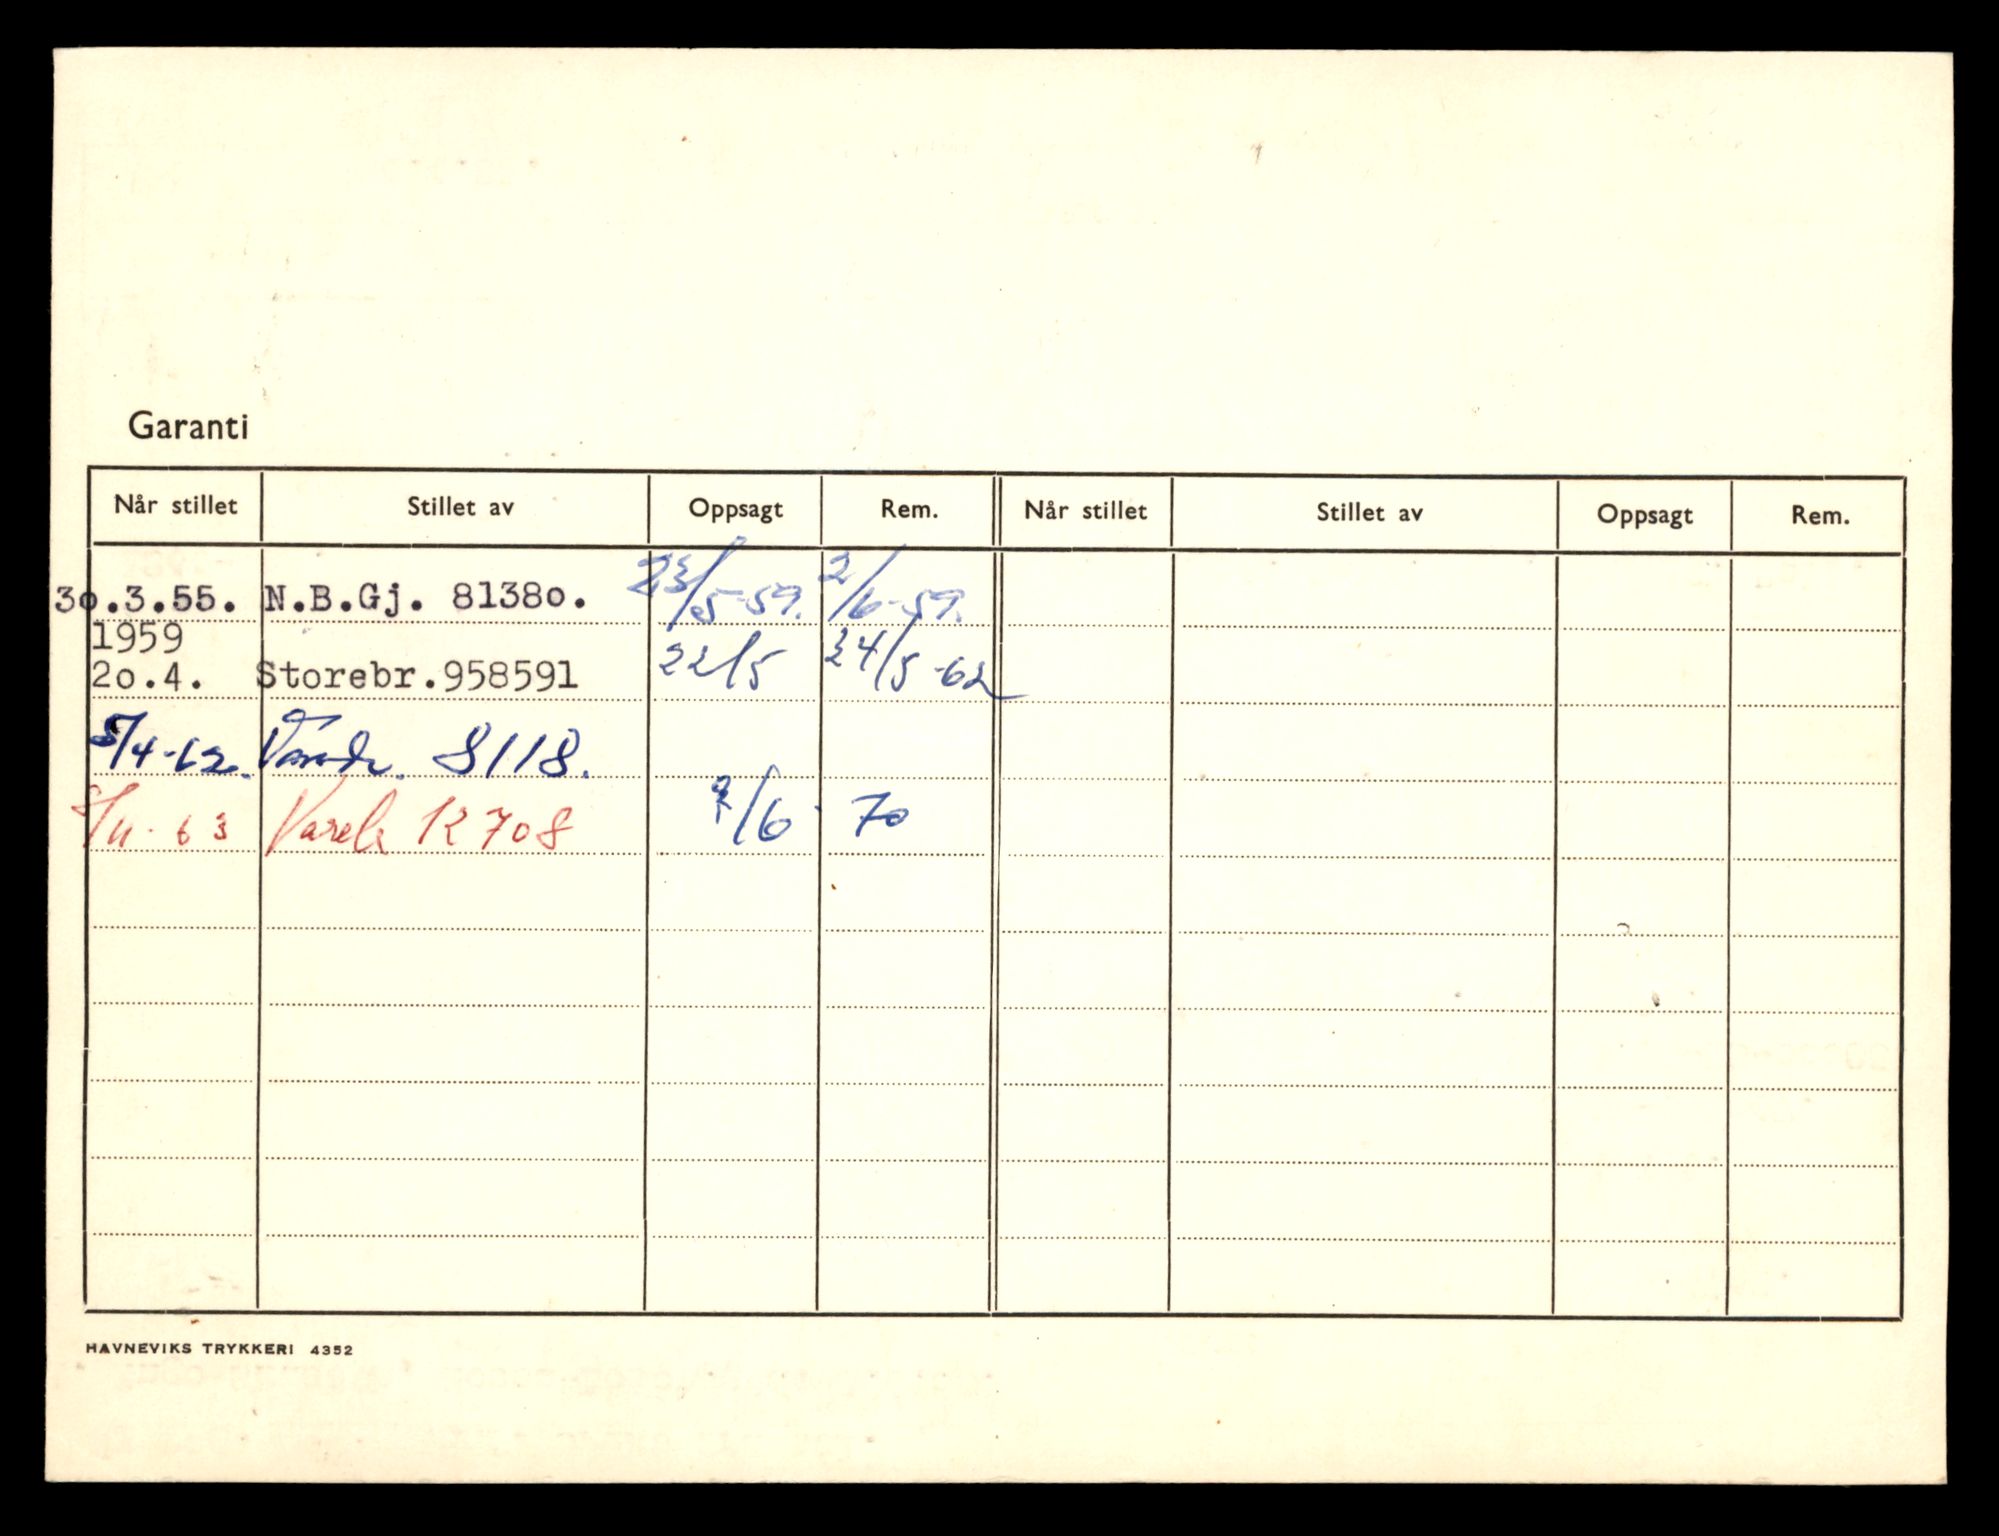 Garanti
Når stillet Stillet av Oppsagt Rem. Når stillet Stillet av Oppsagt Rem.
30.3.55. N.B.Gj. 81380. 23/5-59. 2/6-59.
1959
20.4. Storebr.958591 22/5 24/5-62
5/4-62. 8118.
/11-63 K 708 /6 70
HAVNEVIKS TRYKKERI 4352